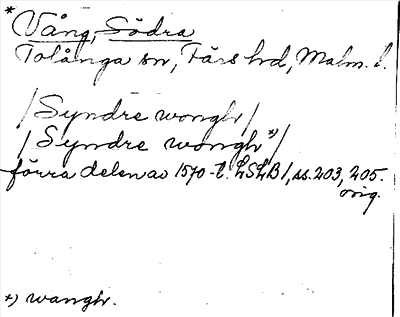 * Vång, Södra
Tolånga sn, Färs hd, Malm. l.
/Syndre wongh/
/Syndre wongh*)/
förra delen av 1570-t. LSLB 1, ss. 203, 205.
orig.
*) wangh.